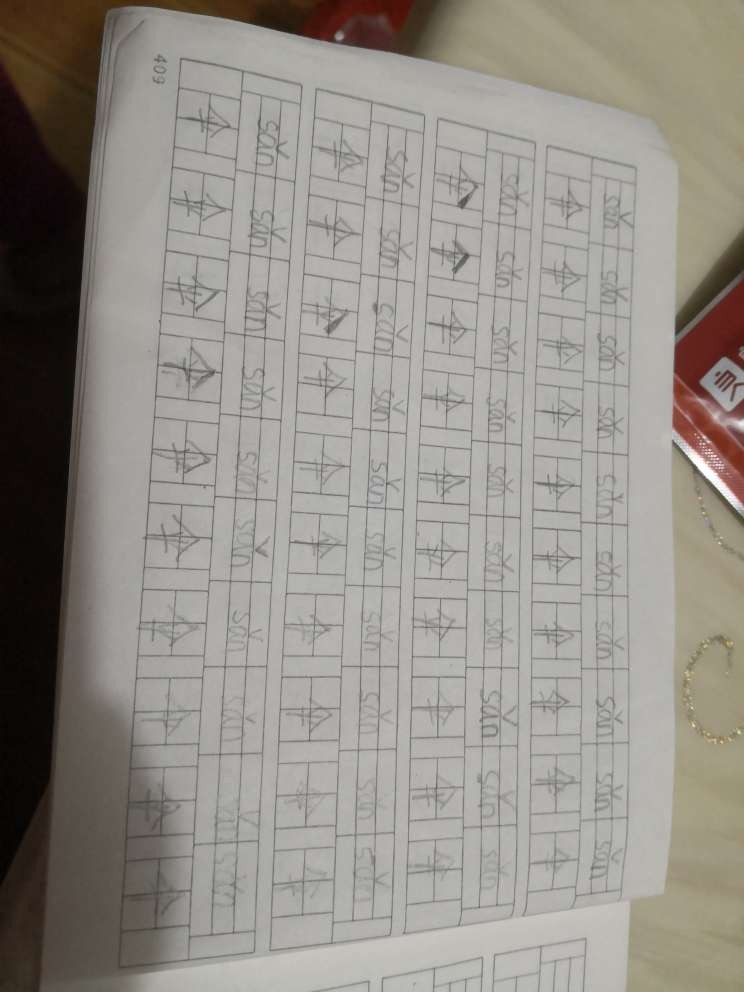 sǎn sǎn sǎn sǎn sǎn sǎn sǎn sǎn sǎn sǎn
伞 伞 伞 伞 伞 伞 伞 伞 伞 伞
sǎn sǎn sǎn sǎn sǎn sǎn sǎn sǎn sǎn sǎn
伞 伞 伞 伞 伞 伞 伞 伞 伞 伞
sǎn sǎn sǎn sǎn sǎn sǎn sǎn sǎn sǎn sǎn
伞 伞 伞 伞 伞 伞 伞 伞 伞 伞
sǎn sǎn sǎn sǎn sǎn sǎn sǎn sǎn sǎn sǎn
伞 伞 伞 伞 伞 伞 伞 伞 伞 伞
409